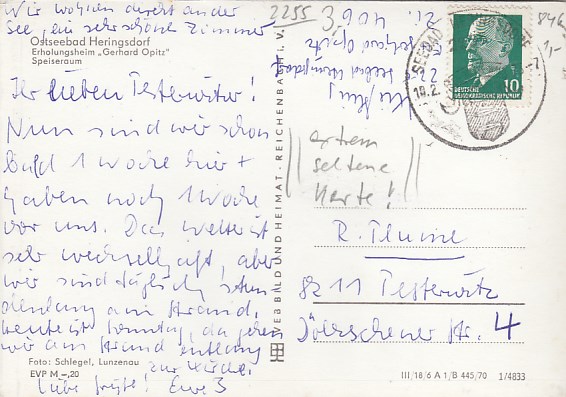 Wir wohnen direkt an der
See, ein sehr schön Zimmer
Ostseebad Heringsdorf
Erholungsheim „Gerhard Opitz“
Speiseraum
Ihr lieben Pesterwitzer!
Nun sind wir schon
bald 1 Woche hier +
haben noch 1 Woche
vor uns. Das Wetter ist
sehr wechselhaft, aber
wir sind täglich stun
denlang am Strand.
heute ist Sonntag, da gehen
wir am Strand entlang
zur Kirche.
Liebe Grüße! Eure 3
Foto: Schlegel, Lunzenau
EVP M –,20
2255
Zi. 406
Gerhard Opitz
Seebad Heringsdorf
BILD UND HEIMAT · REICHENBACH i. V.
SEEBAD
10
DEUTSCHE
DEMOKRATISCHE REPUBLIK
846
1,-
extrem
seltene
Karte!
8211 Pesterwitz
Str. 4
III/18/6 A 1/B 445/70 1/4833